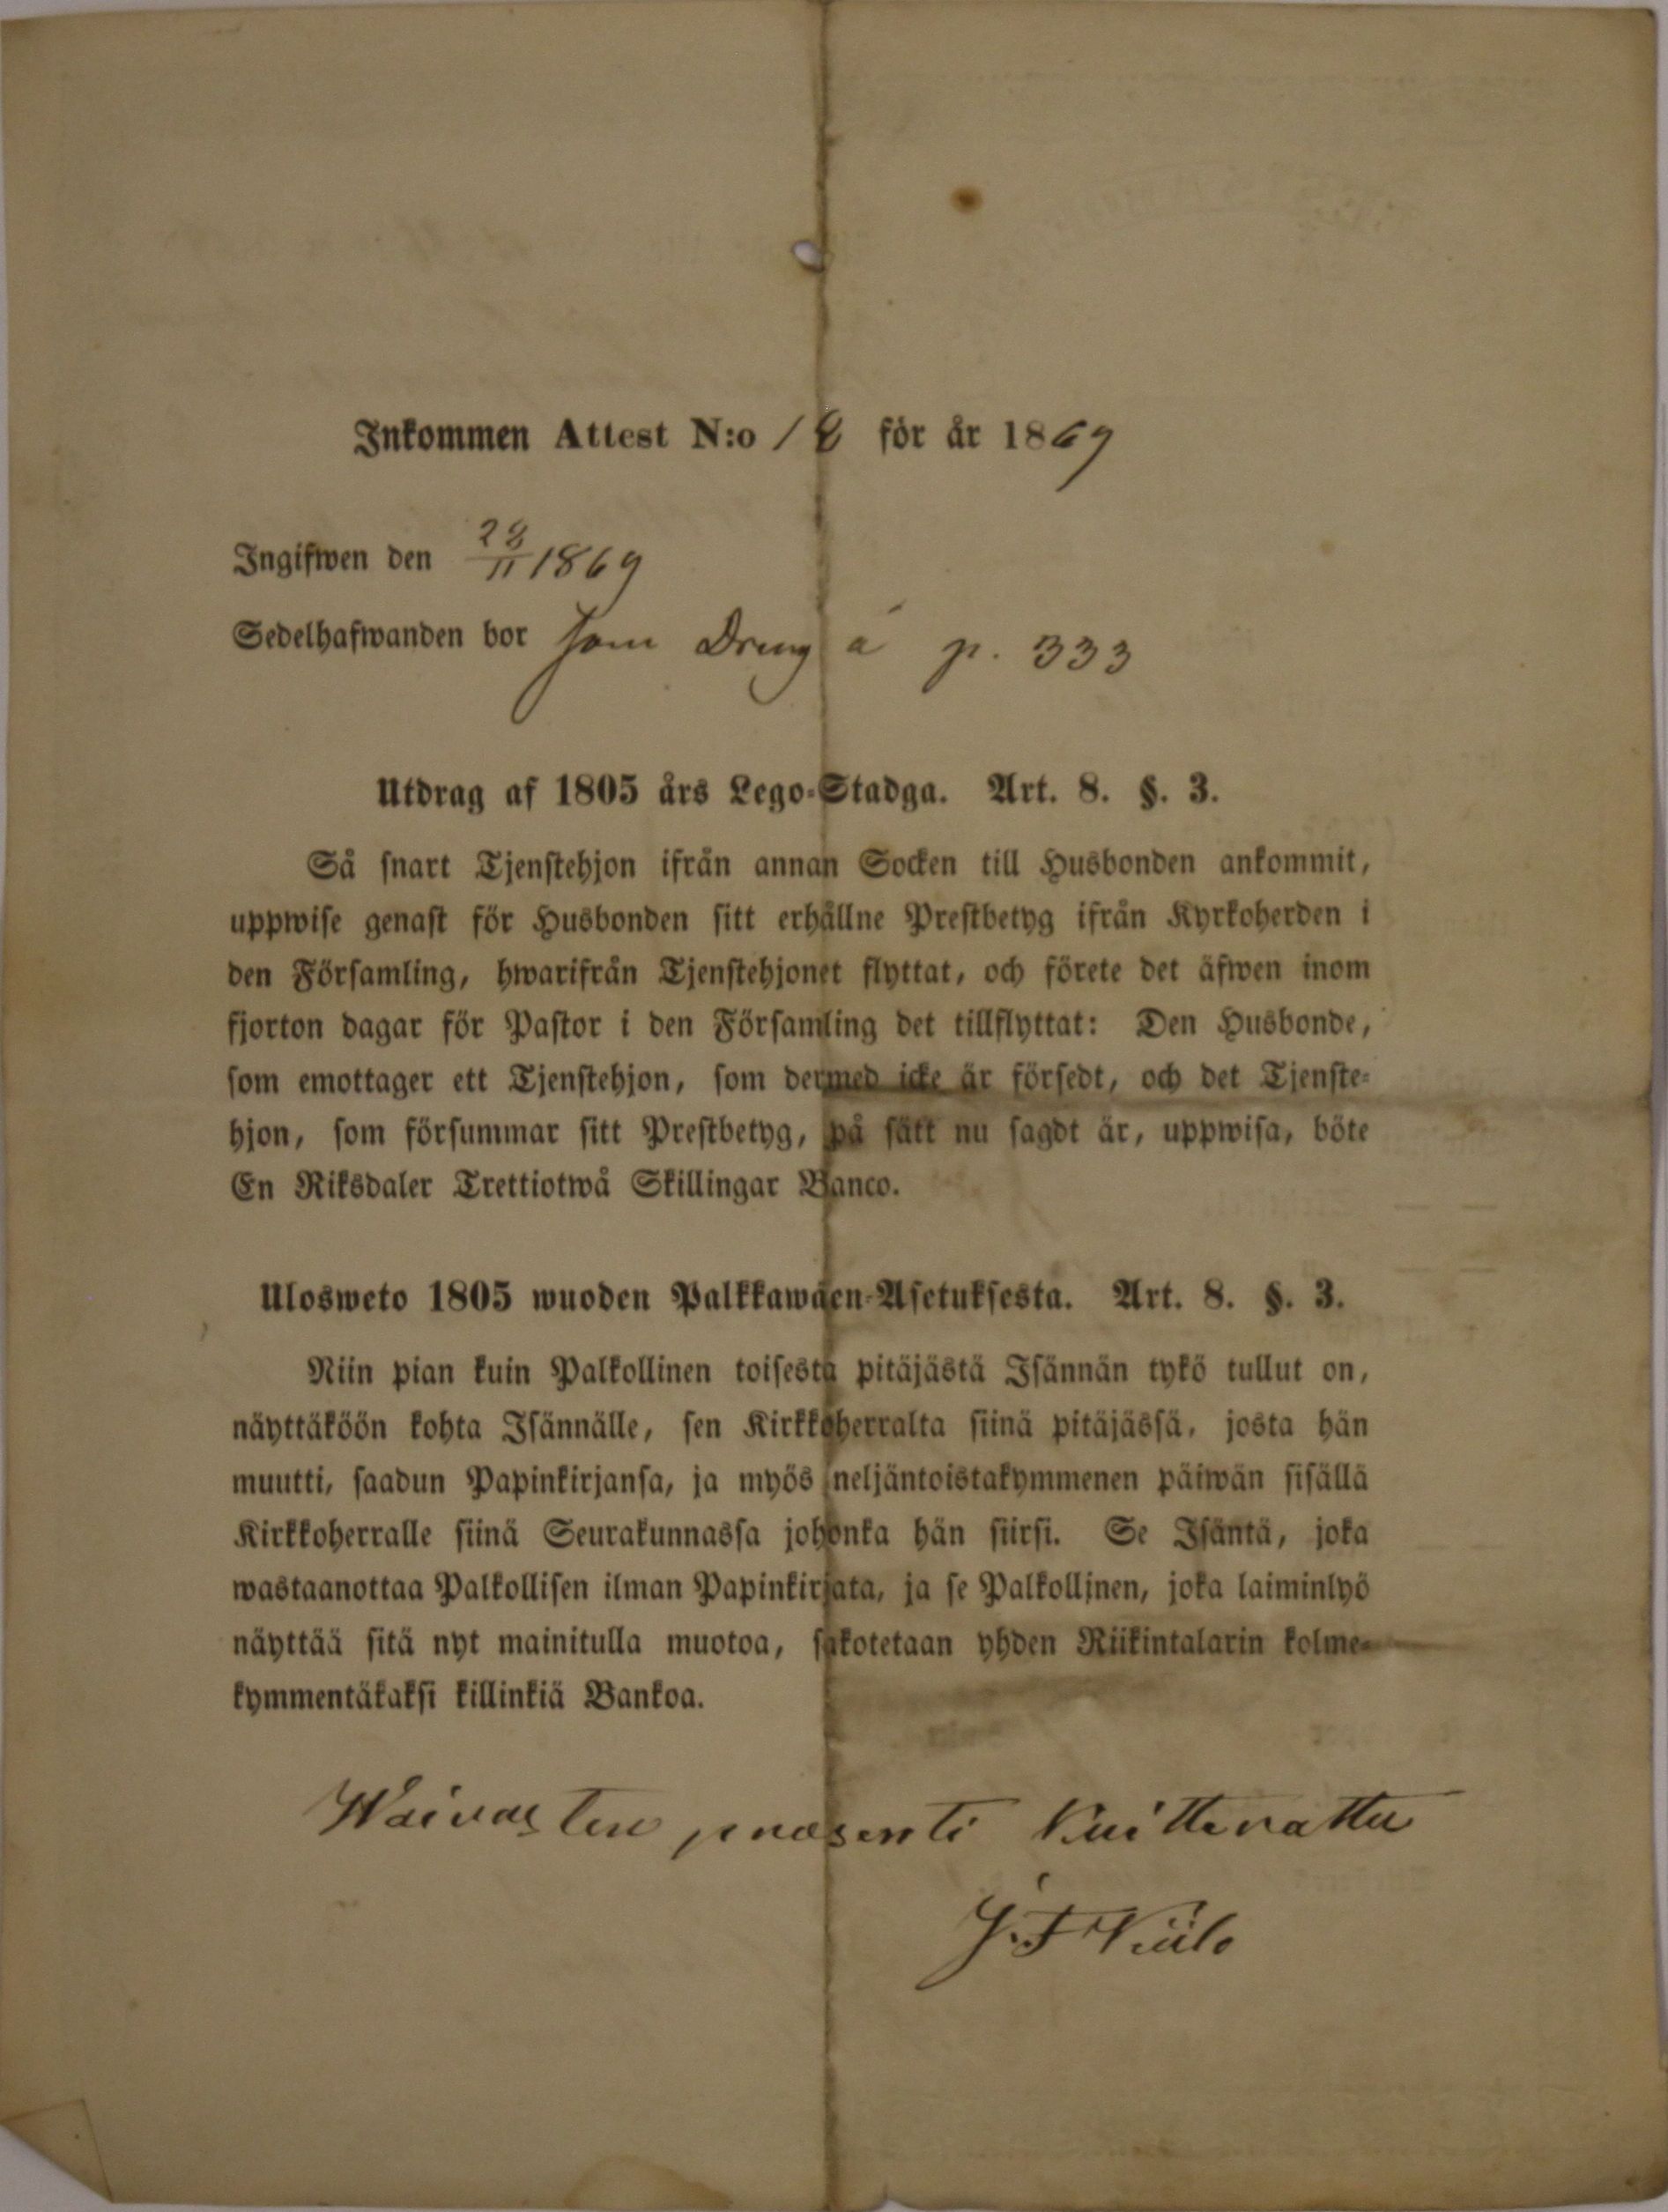 Inkommen Attest N:o 18 för år 1869
Ingifwen den 28/11 1869
Sedelhafwanden bor som Dreng å p. 333
Utdrag af 1805 års Lego-Stadga. Art. 8. §. 3.
Så snart Tjenstehjon ifrån annan Socken till Husbonden ankommit,
uppwise genast för Husbonden sitt erhållne Prestbetyg ifrån Kyrkoherden i
den Församling, hwarifrån Tjenstehjonet flyttat, och förete det äfwen inom
fjorton dagar för Pastor i den Församling det tillflyttat: Den Husbonde,
som emottager ett Tjenstehjon, som dermed icke är försedt, och det Tjenste-
hjon, som försummar sitt Prestbetyg, på sätt nu sagdt är, uppwisa, böte
En Riksdaler Trettiotwå Skillingar Banco.
Ulosweto 1805 wuoden Palkkawäen-Asetuksesta. Art. 8. §. 3.
Niin pian kuin Palkollinen toisesta pitäjästä Isännän tykö tullut on,
näyttäköön kohta Isännälle, sen Kirkkoherralta siinä pitäjässä, josta hän
muutti, saadun Papinkirjansa, ja myös neljäntoistakymmenen päiwän sisällä
Kirkkoherralle siinä Seurakunnassa johonka hän siirsi. Se Isäntä, joka
wastaanottaa Palkollisen ilman Papinkirjata, ja se Palkollinen, joka laiminlyö
näyttää sitä nyt mainitulla muotoa, sakotetaan yhden Riikintalarin kolme-
kymmentäkaksi killinkiä Bankoa.
Waivasten prosenti Kuitterattu
J. F